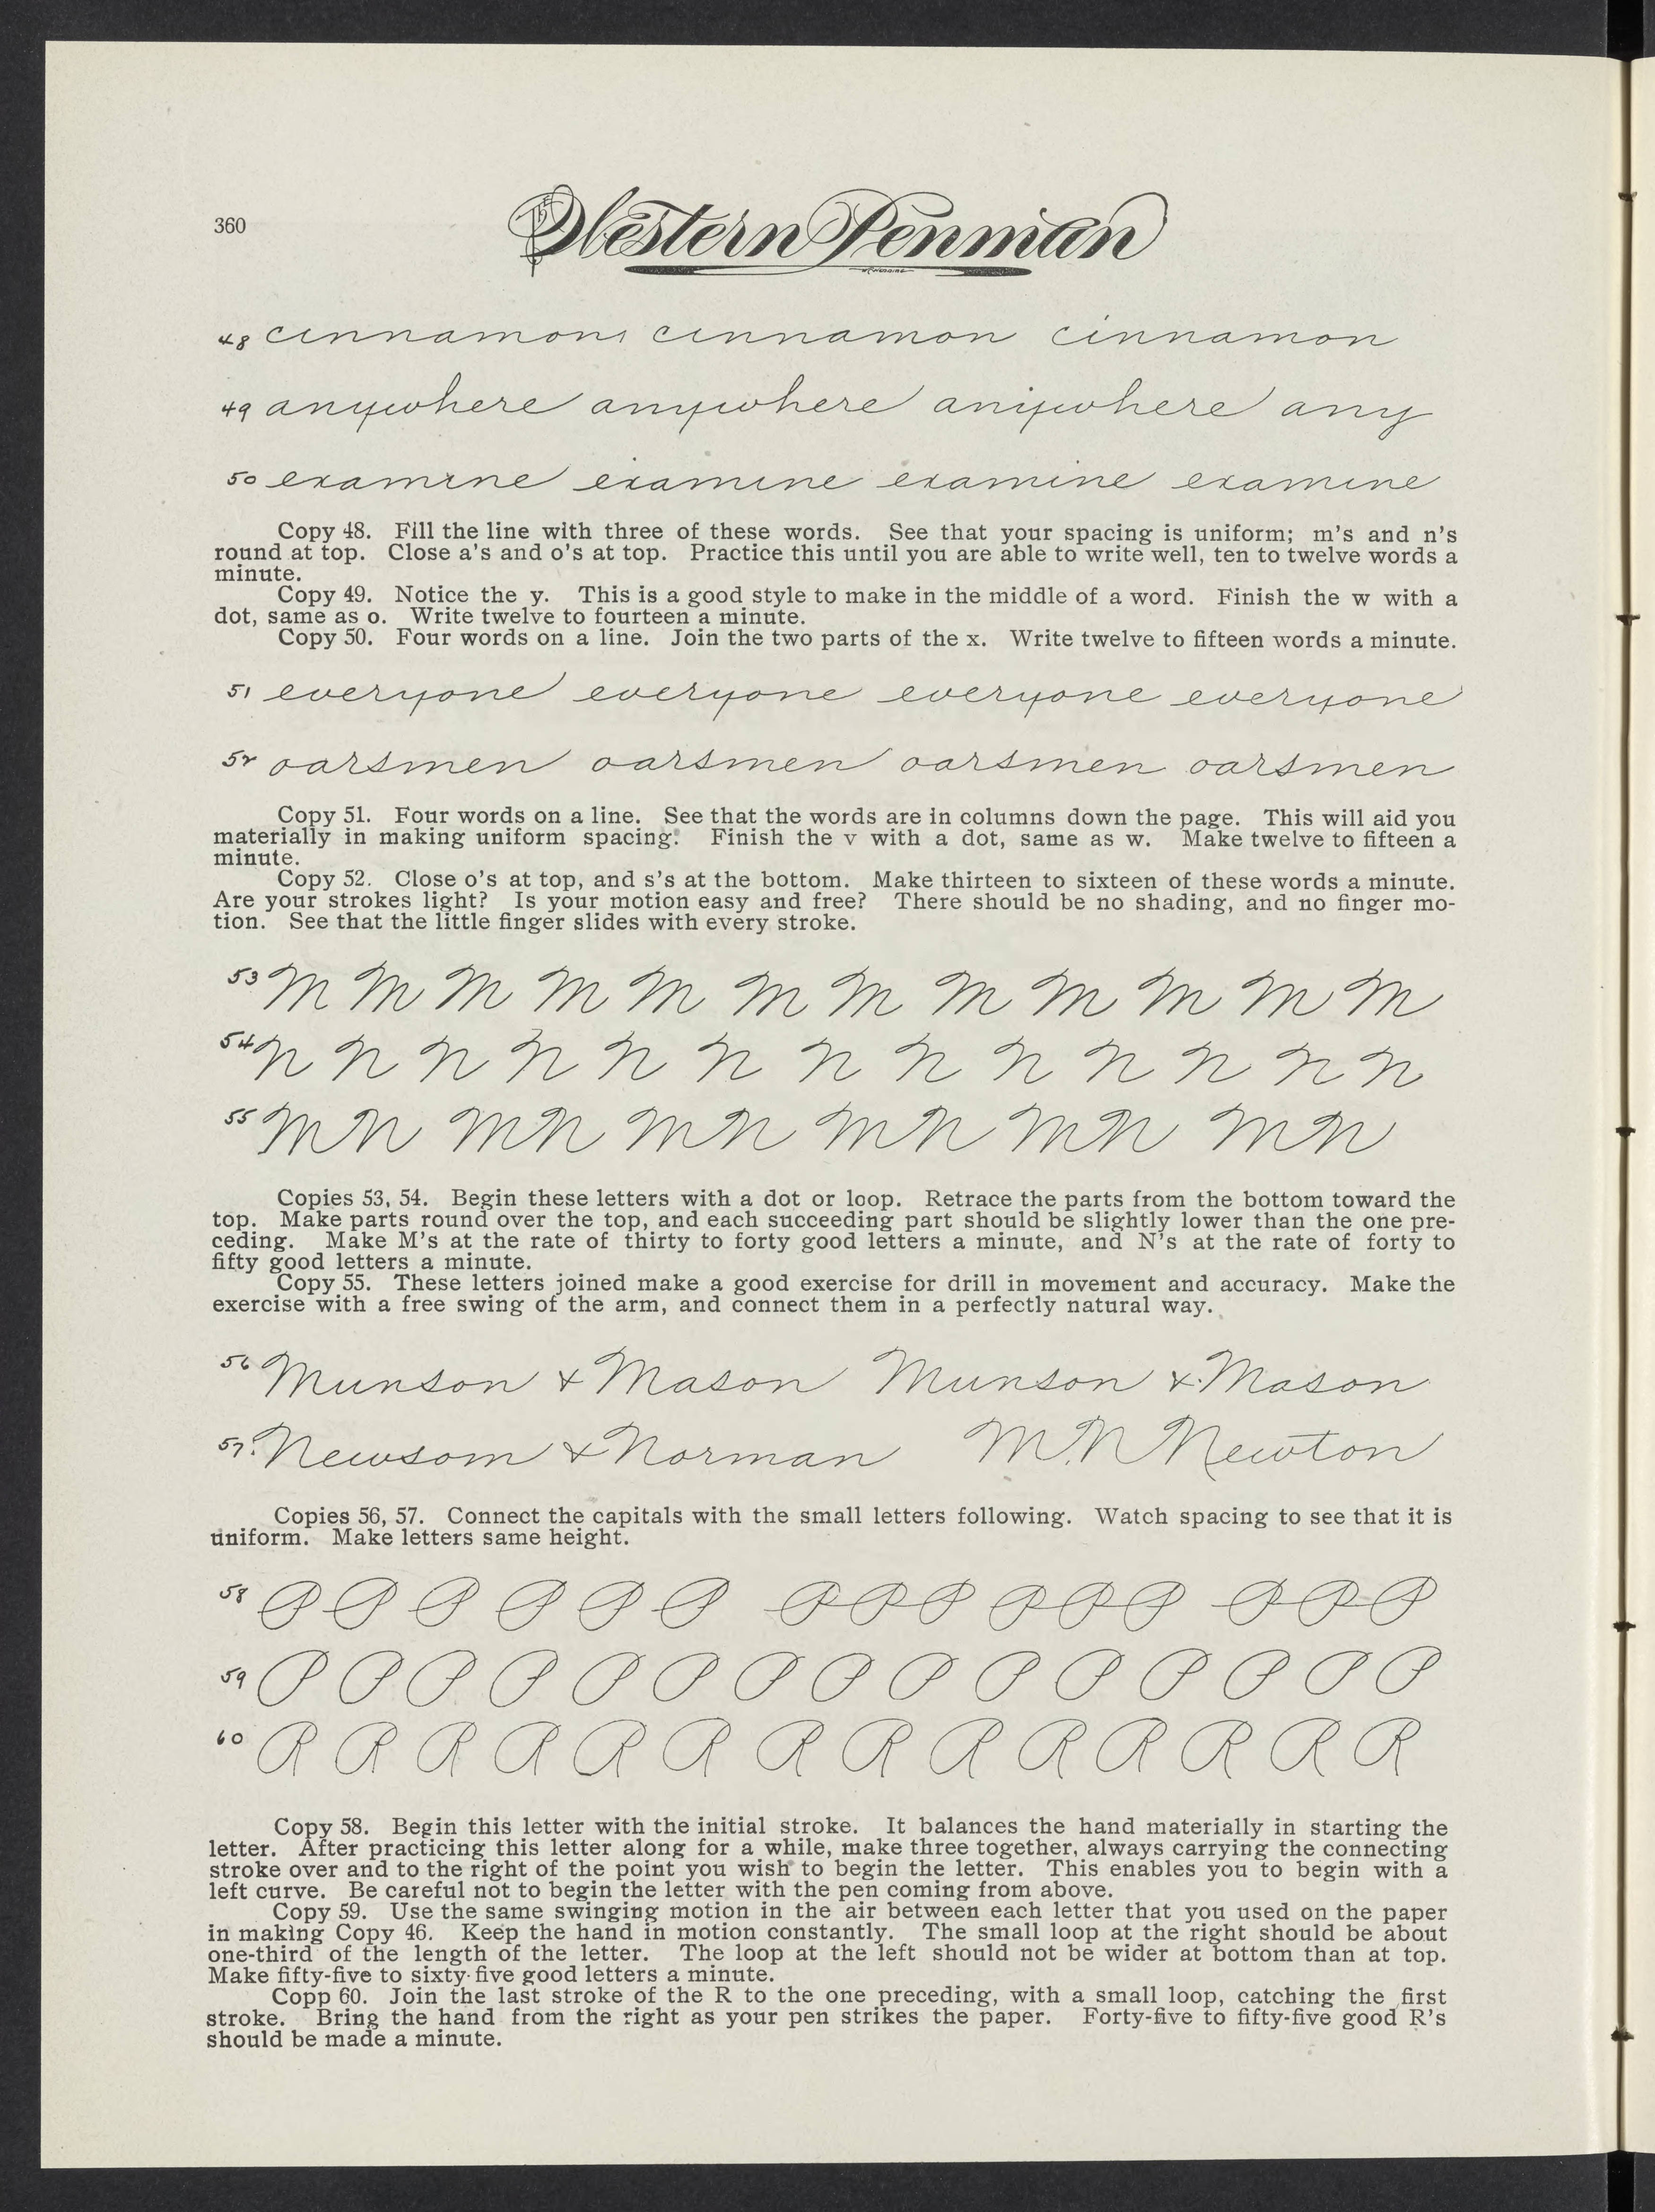 360
The Western Penman
48 cinnamons cinnamon cinnamon
49 anywhere anywhere anywhere any
50 examine examine examine examine
Copy 48. Fill the line with three of these words. See that your spacing is uniform; m's and n's
round at top. Close a's and o's at top. Practice this until you are able to write well, ten to twelve words a
minute.
Copy 49. Notice the y. This is a good style to make in the middle of a word. Finish the w with a
dot, same as o. Write twelve to fourteen a minute.
Copy 50. Four words on a line. Join the two parts of the x. Write twelve to fifteen words a minute.
51 everyone everyone everyone everyone
52 oarsmen oarsmen oarsmen oarsmen
Copy 51. Four words on a line. See that the words are in columns down the page. This will aid you
materially in making uniform spacing. Finish the v with a dot, same as w. Make twelve to fifteen a
minute.
Copy 52. Close o's at top, and s's at the bottom. Make thirteen to sixteen of these words a minute.
Are your strokes light? Is your motion easy and free? There should be no shading, and no finger mo-
tion. See that the little finger slides with every stroke.
53 M M M M M M M M M M M M
54 N N N N N N N N N N N N N
55 MN MN MN MN MN MN
Copies 53, 54. Begin these letters with a dot or loop. Retrace the parts from the bottom toward the
top. Make parts round over the top, and each succeeding part should be slightly lower than the one pre-
ceding. Make M's at the rate of thirty to forty good letters a minute, and N's at the rate of forty to
fifty good letters a minute.
Copy 55. These letters joined make a good exercise for drill in movement and accuracy. Make the
exercise with a free swing of the arm, and connect them in a perfectly natural way.
56 Munson & Mason Munson & Mason
57. Newsom & Norman M. N. Newton
Copies 56, 57. Connect the capitals with the small letters following. Watch spacing to see that it is
uniform. Make letters same height.
58 P P P P P P PPP PPP PPP
59 P P P P P P P P P P P P P P P
60 R R R R R R R R R R R R R R
Copy 58. Begin this letter with the initial stroke. It balances the hand materially in starting the
letter. After practicing this letter along for a while, make three together, always carrying the connecting
stroke over and to the right of the point you wish to begin the letter. This enables you to begin with a
left curve. Be careful not to begin the letter with the pen coming from above.
Copy 59. Use the same swinging motion in the air between each letter that you used on the paper
in making Copy 46. Keep the hand in motion constantly. The small loop at the right should be about
one-third of the length of the letter. The loop at the left should not be wider at bottom than at top.
Make fifty-five to sixty-five good letters a minute.
Copp 60. Join the last stroke of the R to the one preceding, with a small loop, catching the first
stroke. Bring the hand from the right as your pen strikes the paper. Forty-five to fifty-five good R's
should be made a minute.